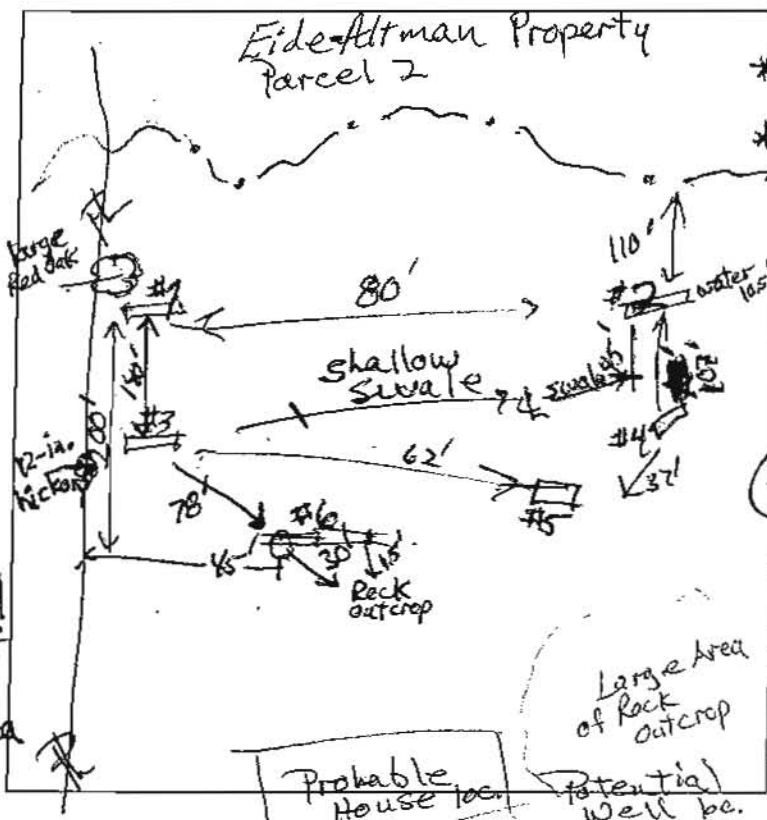 Eide-Altman Property
Parcel 2
110'
Large
Red Oak
#1
80'
#2
water
Shallow
Swale
swale
#3
#4
12-in.
hickory
62'
37'
#5
78'
#6
45
30
15'
Rock
outcrop
Large Area
of Rock
Outcrop
Probable
House loc.
Potential
Well loc.